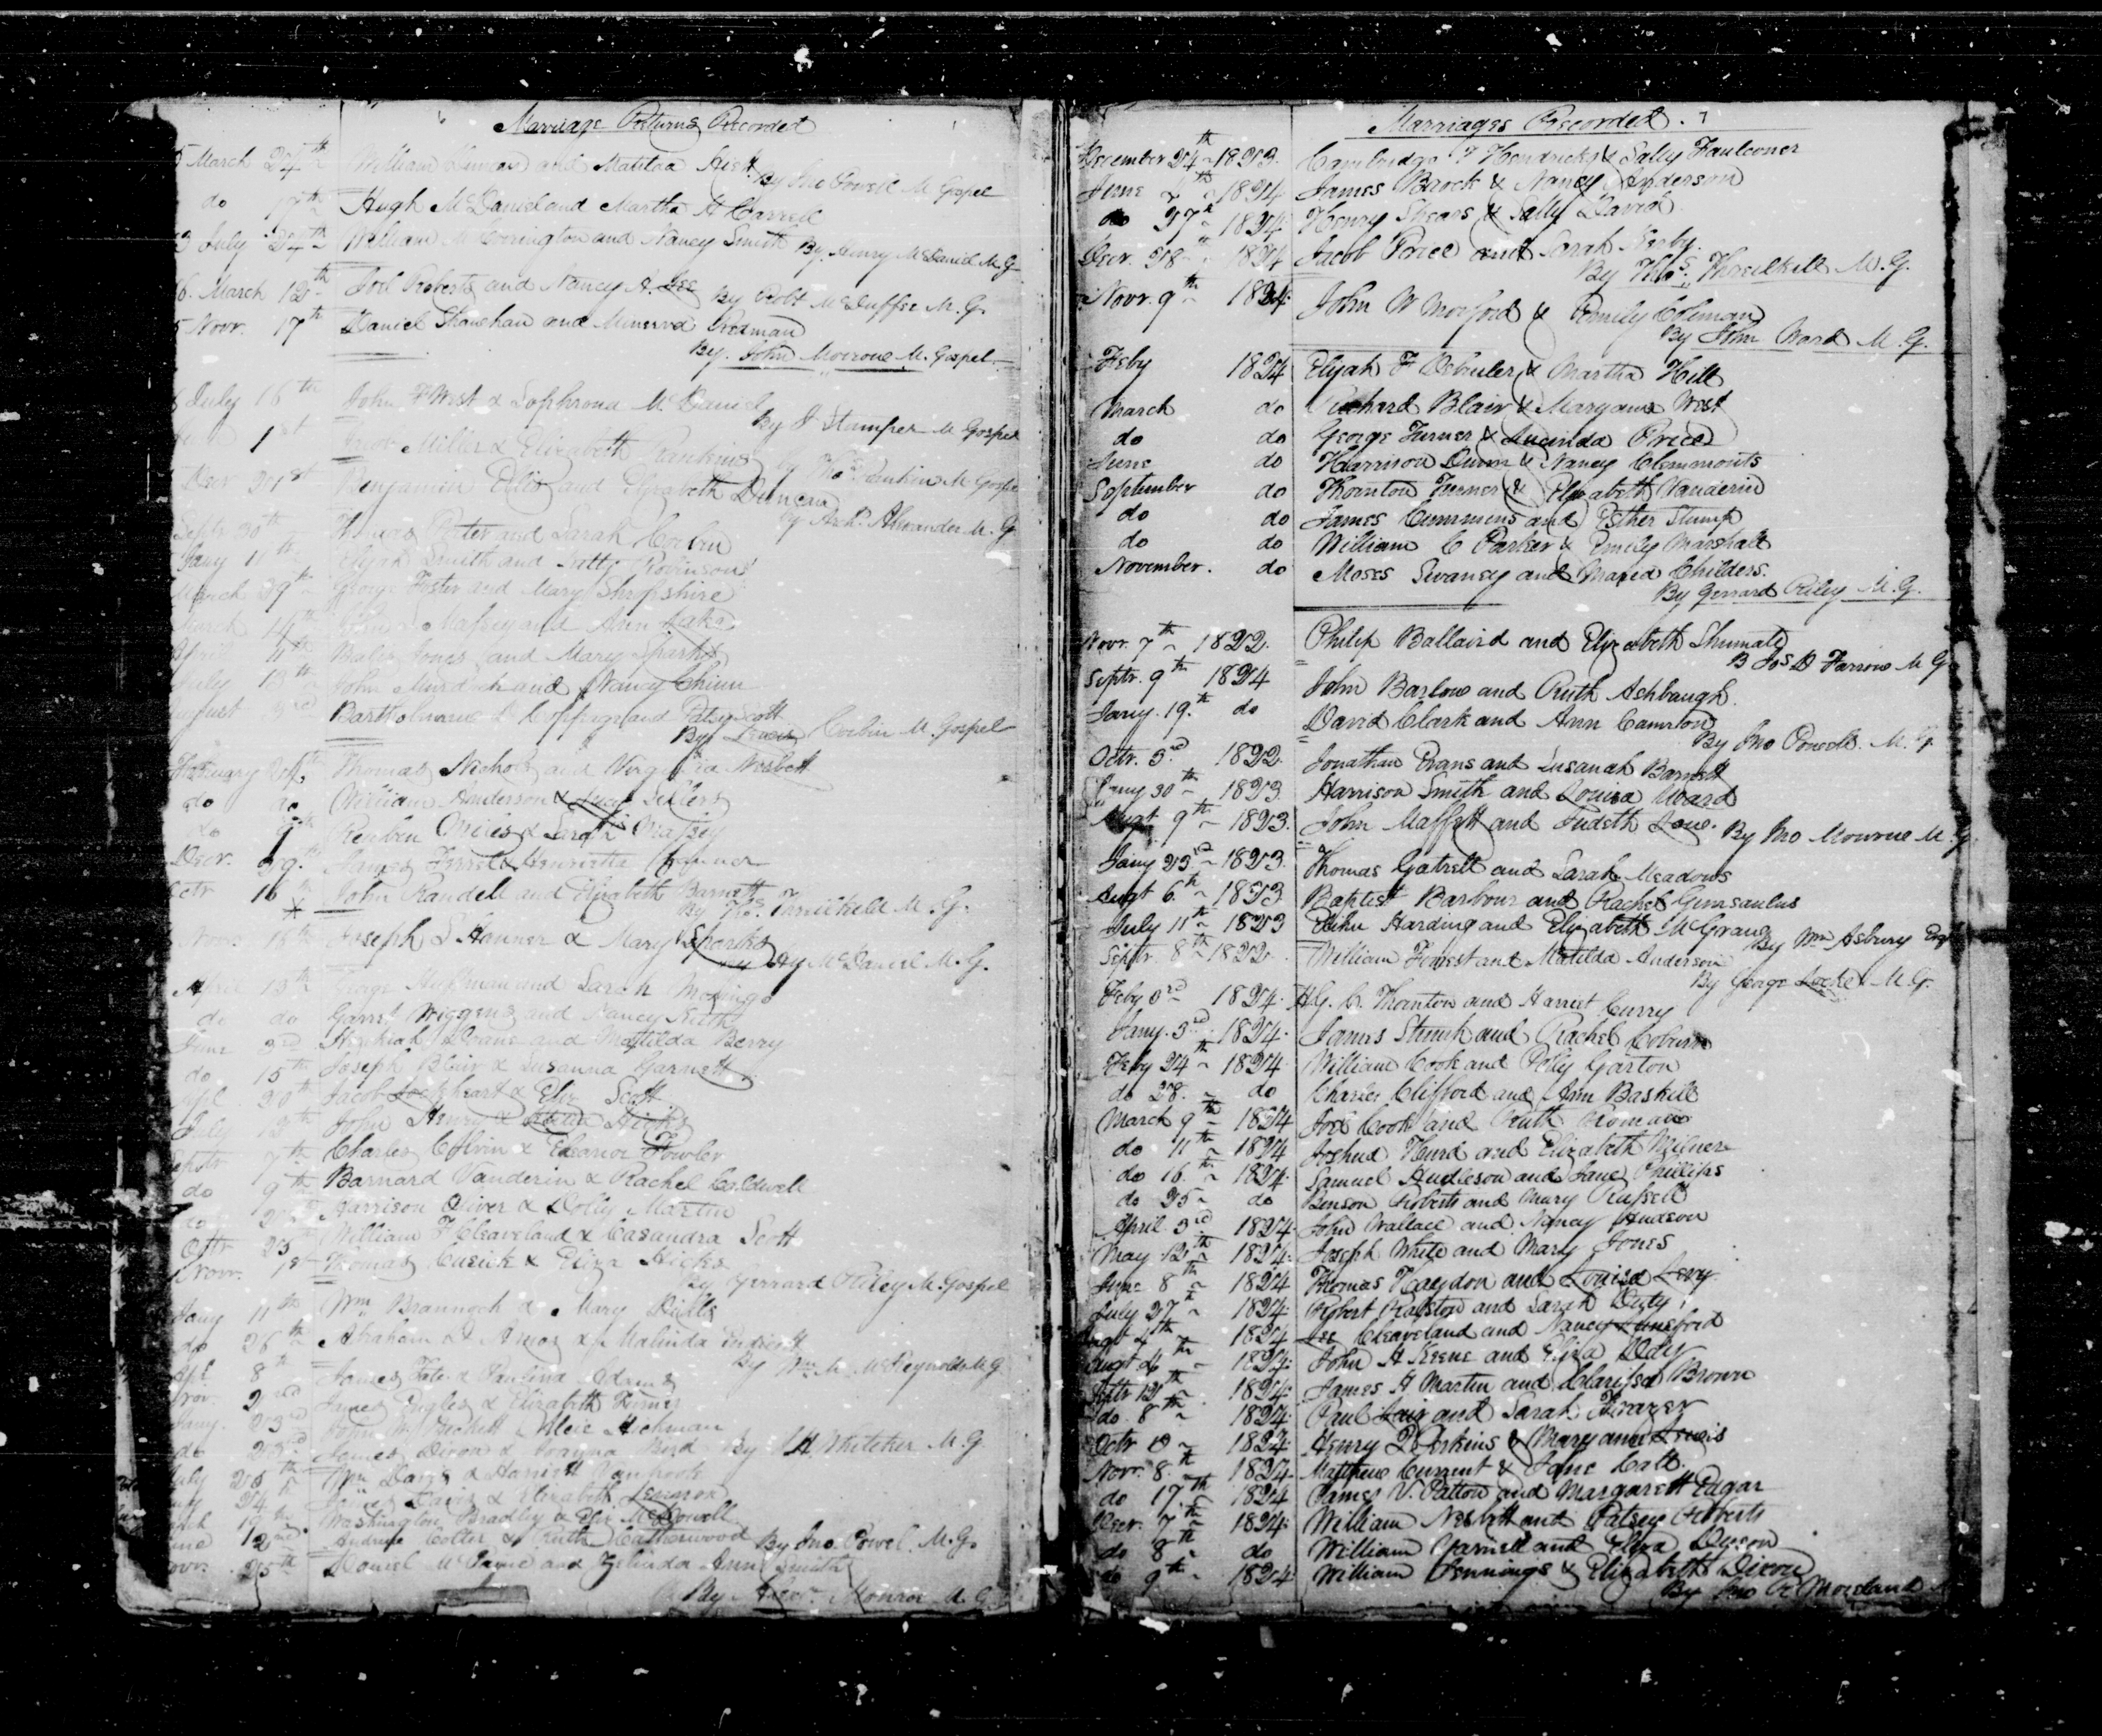 Marriage Returns Recorded
5 March 24th William Duncan and Matilda Hiett
By Jno Powell M Gospel
do 17th Hugh McDaniel and Martha A Carrell
3 July 24th William M Corington and Nancy Smith By Henry McDaniel M.G
6. March 12th Joel Roberts and Nancy A. Lee By Robt McDuffee M.G.
5 Novr. 17th Daniel Shawhan and Minerva Redman
By. John Monroue M. Gospel
6 July 16th John F West & Sophrona McDaniel
By J Stamper M Gospel
1st Jacob Miller & Elizabeth Rankins By Thos Rankin M Gospel
Decr 21st Benjamin Ellis and Elizabeth Duncan
By Archd Alexander M.G
Septr 30th Thomas Potter and Sarah Corbin
Jany 11th Elijah Smith and Patty Robinson
March 29th George Foster and Mary Shropshire
March 14th Massey and Ann Lake
April 4th Jones and Mary Sparks
July 13th John Murdock and Nancy Chinn
August 3rd Bartholomew L Coppage and Patsy Scott
By Lewis Corbin M. Gospel
February Thomas Nichols and Virginia Nesbett
do do William Anderson & Lucy Sellers
do 9th Reuben Miles & Sarah Massey
Decr. 29th James Ferrel & Henrietta Conner
Octr 16th John Randell and Elizabeth Barnett
By Thos. Threilkeld M.G.
Novr. 16th Joseph S Hanner & Mary Sparks
By Hy McDaniel M.G.
April 13th George Huffman and Sarah Mozingo
do do Garrt Wiggens and Nancy Keith
June 3rd Hezekiah Doane and Matilda Berry
do 15th Joseph Blair & Susanna Garnett
20th Jacob Lockheart & Eliz Scott
July 13th John Henry & Hicks
Septr 7th Charles Colvin & Eleanor Fowler
do 9th Barnard Vanderin & Rachel Caldwell
do Harrison Oliver & Dolly Martin
Octr 25 William F Cleaveland & Casandra Scott
Novr. 1st Thomas Cusick & Eliza Hicks
By Gerrard Riley M. Gospel
Jany 11th Wm Braungh & Mary Dills
do 26th Abraham D Amos & Malinda Endicott
By Wm M McReynolds M.G
8th James Tate & Paulina Adams
Novr. 2nd James Ingles & Elizabeth Turner
Jany. 23rd John W Beckett & Alcie Hickman
do James Dixon & Joanna Bird By J.H. Whiteker M.G.
July 25th Wm Davis & Harriett Vanhook
24 James Davis & Elizabeth Lennon
19th Washington Bradley & Eliz McDowell
12 Andrew Cotter & Ruth Catherwood By Jno. Powel. M.G.
Novr. 25th Daniel McPayne and Zelinda Ann Smith
By Monroe M.G
Marriages Recorded. 7
December 24th 1823. Cambridge F Hendricks & Sally Faulconer
June 1824 James Brock & Nancy Anderson
do 27th 1824 Henry Shears & Sally David
Decr. 28th 1824 Jacob Price and Sarah Kerby.
By Thos. Threilkeld M.G.
Novr. 9th 1824. John W Morford & Emily Coleman
By John Ward M.G.
Feby 1824 Elijah F Debruler & Martha Hill
March do Richard Blair & Maryann West
do do George Turner & Lucinda Price
June do Harrison Dunn & Nancy Clemmonts
September do Thornton Turner & Elizabeth Vanderin
do do James Cummins and Esther Stump
do do William C Parker & Emily Marshall
November. do Moses Swaney and Maria Childers.
By Gerrard Riley M.G.
Novr. 7th 1822. Philip Ballaird and Elizabeth Shumate
B Jos D Farrow M G
Septr. 9th 1824 John Barlow and Ruth Ashbaugh.
Jany. 19th do David Clark and Ann Camron
By Jno Powell. M.G.
Octr. 3rd 1822. Jonathan Evans and Susanah Barnett
Jany 30th 1823. Harrison Smith and Louisa Ward
Augt 9th 1823. John Maffett and Judeth Lowe. By Jno Monroue M.G.
Jany 23rd 1823. Thomas Gatrell and Sarah Meadows
Augt 6th 1823. Baptist Barbour and Rachel Gimsaulus
July 11th 1823 Elihu Harding and Elizabeth McGraug
By Wm Asbury Esq
Septr. 8th 1822. William Forrest and Matilda Anderson
By George Locke M.G.
Feby 3rd 1824. H.G. C. Thornton and Harriet Curry
Jany. 3rd 1824. James Shunk and Rachel Coburn
Feby 24th 1824 William Cook and Polly Garton
do 28. do Charles Clifford and Ann Baskett
March 9th 1824 Joel Cook and Ruth Roman
do 11th 1824 Joshua Hurd and Elizabeth Milner
do 16th 1824. Samuel Hudleson and Jane Phillips
do 25 do Benson Roberts and Mary Russell
April 3rd 1824. John Wallace and Nancy Hudson
May 12th 1824. Joseph White and Mary Jones
June 8th 1824 Thomas Haydon and Louisa Levy
July 27th 1824. Robert Ralston and Sarah Duty
Augt 4th 1824 Lee Cleaveland and Nancy Lunsford
Augt 4th 1824. John H Keene and Eliza Doty
Septr 12th 1824. James H Martin and Clarissa Brown
do. 8th 1824. Paul Lair and Sarah Frazer
Octr 1824. Henry P Perkins & Mary ann Lewis
Novr. 8th 1824. Matthew Current & Jane Call.
do 17th 1824 James V. Patton and Margarett Edgar
Decr. 7th 1824. William Nesbitt and Patsey Roberts
do 8th do William Yarnell and Eliza Deeson
do 9th 1824. William Jennings & Elizabeth Dixon
By Jno R Moreland